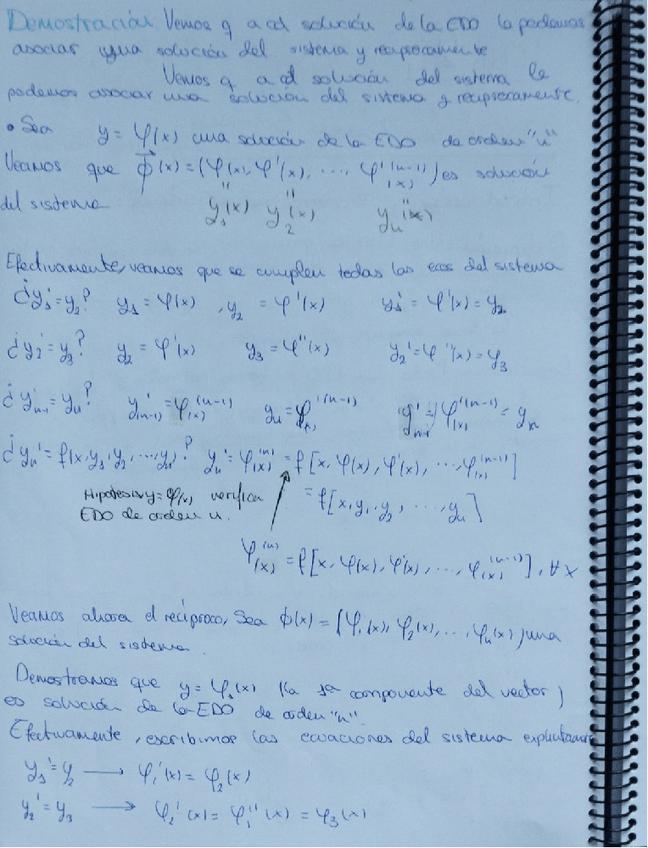 Demostración Vemos q a cd solución de la EDO la podemos
asociar una solución del sistema y recíprocamente
Vemos q a cd solución del sistema le
podemos asociar una solución del sistema y recíprocamente.
• Sea y = φ(x) una solución de la EDO de orden "n"
Veamos que ϕ⃗(x) = (φ(x), φ'(x), ..., φ^(n-1)(x)) es solución
del sistema y₁(x) y₂(x) yₙ(x)
Efectivamente, veamos que se cumplen todas las ecs del sistema
¿y₁' = y₂? y₁ = φ(x) , y₂ = φ'(x) y₁' = φ'(x) = y₂
¿y₂' = y₃? y₂ = φ'(x) y₃ = φ''(x) y₂' = φ''(x) = y₃
¿y'ₙ₋₁ = yₙ? y'(n-1) = φ(x)^(n-1) yₙ = φ(x)^(n-1) y'ₙ₋₁ = φ(x)^(n-1) = yₙ
¿yₙ' = f(x, y₁, y₂, ..., yₙ)? yₙ' = φ(x)^(n) = f[x, φ(x), φ'(x), ..., φ(x)^(n-1)]
Hipótesis y = φ(x) verifica = f[x, y₁, y₂, ..., yₙ]
EDO de orden n.
φ(x)^(n) = f[x, φ(x), φ'(x), ..., φ(x)^(n-1)], ∀x
Veamos ahora el recíproco, Sea ϕ(x) = (φ₁(x), φ₂(x), ..., φₙ(x)) una
solución del sistema.
Demostramos que y = φ₁(x) (la 1ª componente del vector)
es solución de la EDO de orden "n".
Efectivamente, escribimos las ecuaciones del sistema
y₁' = y₂ → φ₁'(x) = φ₂(x)
y₂' = y₃ → φ₂'(x) = φ₁''(x) = φ₃(x)